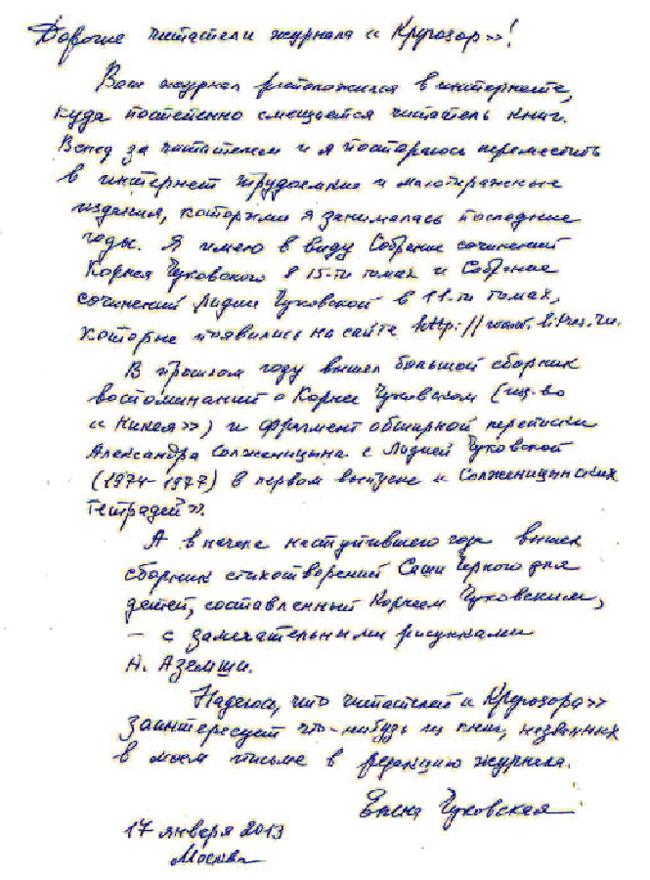 Дорогие читатели журнала «Кругозор»!
Ваш журнал расположился в интернете,
куда постепенно смещается читатель книг.
Вслед за читателем и я постараюсь переместить
в интернет трудоемкие и малотиражные
издания, которыми я занималась последние
годы. Я имею в виду Собрание сочинений
Корнея Чуковского в 15-ти томах и Собрание
сочинений Лидии Чуковской в 11-ти томах,
которые появились на сайте http://www.litres.ru.
В прошлом году вышел большой сборник
воспоминаний о Корнее Чуковском (изд-во
«Никея») и фрагмент обширной переписки
Александра Солженицына с Лидией Чуковской
(1974-1977) в первом выпуске «Солженицынских
тетрадей».
А в начале наступившего года вышел
сборник стихотворений Саши Черного для
детей, составленный Корнеем Чуковским,
– с замечательными рисунками
А. Аземши.
Надеюсь, что читателей «Кругозора»
заинтересует что-нибудь из книг, названных
в моем письме в редакцию журнала.
Елена Чуковская
17 января 2013
Москва